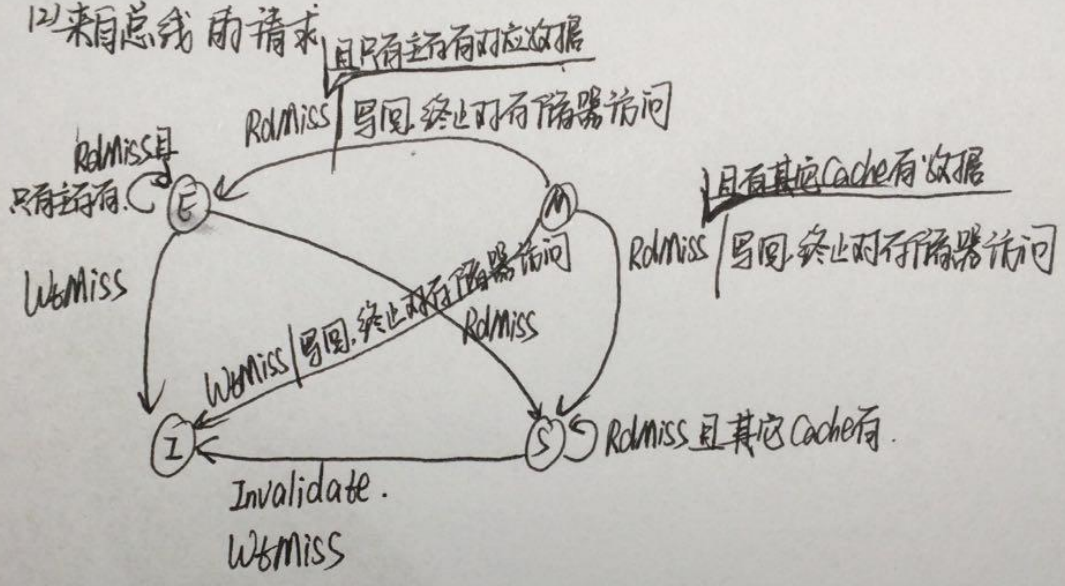 (2)来自总线的请求
且只有主存有对应数据
RdMiss 写回.终止对存储器访问
RdMiss且
只有主存有.
E
M
且有其它Cache有数据
RdMiss 写回.终止对存储器访问
WtMiss
RdMiss
WtMiss 写回.终止对存储器访问
I
S
RdMiss且其它Cache有.
Invalidate.
WtMiss